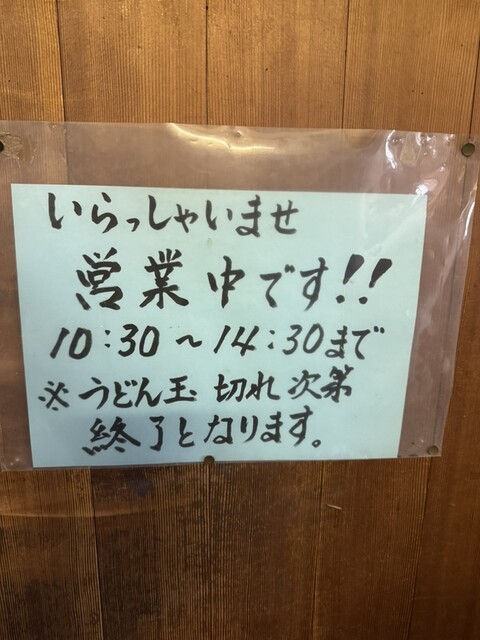 いらっしゃいませ
営業中です!!
10:30～14:30まで
※うどん玉 切れ 次第
終了となります。